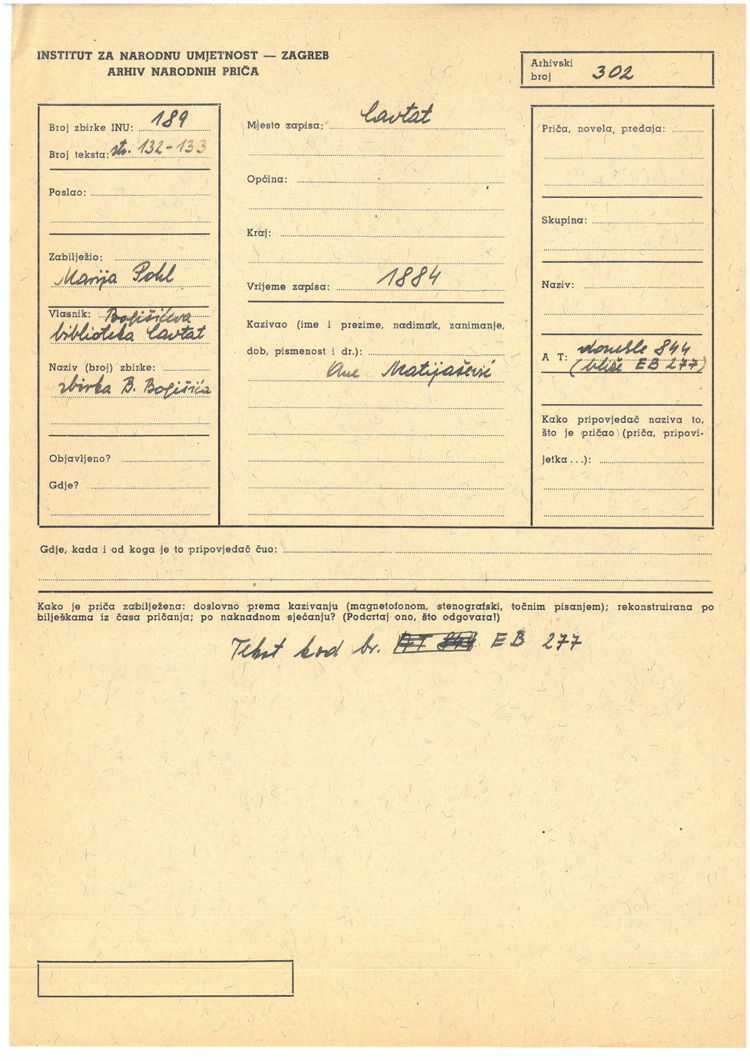 INSTITUT ZA NARODNU UMJETNOST — ZAGREB
ARHIV NARODNIH PRIČA
Arhivski broj 302
Broj zbirke INU: 189
Broj teksta: str. 132-133
Poslao:
Zabilježio:
Marija Pohl
Vlasnik: Bogišićeva
biblioteka Cavtat
Naziv (broj) zbirke:
zbirka B. Bogišića
Objavljeno?
Gdje?
Mjesto zapisa: Cavtat
Općina:
Kraj:
Vrijeme zapisa: 1884
Kazivao (ime i prezime, nadimak, zanimanje,
dob, pismenost i dr.):
Ane Matijašević
Priča, novela, predaja:
Skupina:
Naziv:
A T: donekle 844
(bliže EB 277)
Kako pripovjedač naziva to,
što je pričao (priča, pripovi-
jetka...):
Gdje, kada i od koga je to pripovjedač čuo:
Kako je priča zabilježena: doslovno prema kazivanju (magnetofonom, stenografski, točnim pisanjem); rekonstruirana po
bilješkama iz časa pričanja; po naknadnom sjećanju? (Podcrtaj ono, što odgovara!)
Tekst kod br. AT 844 EB 277